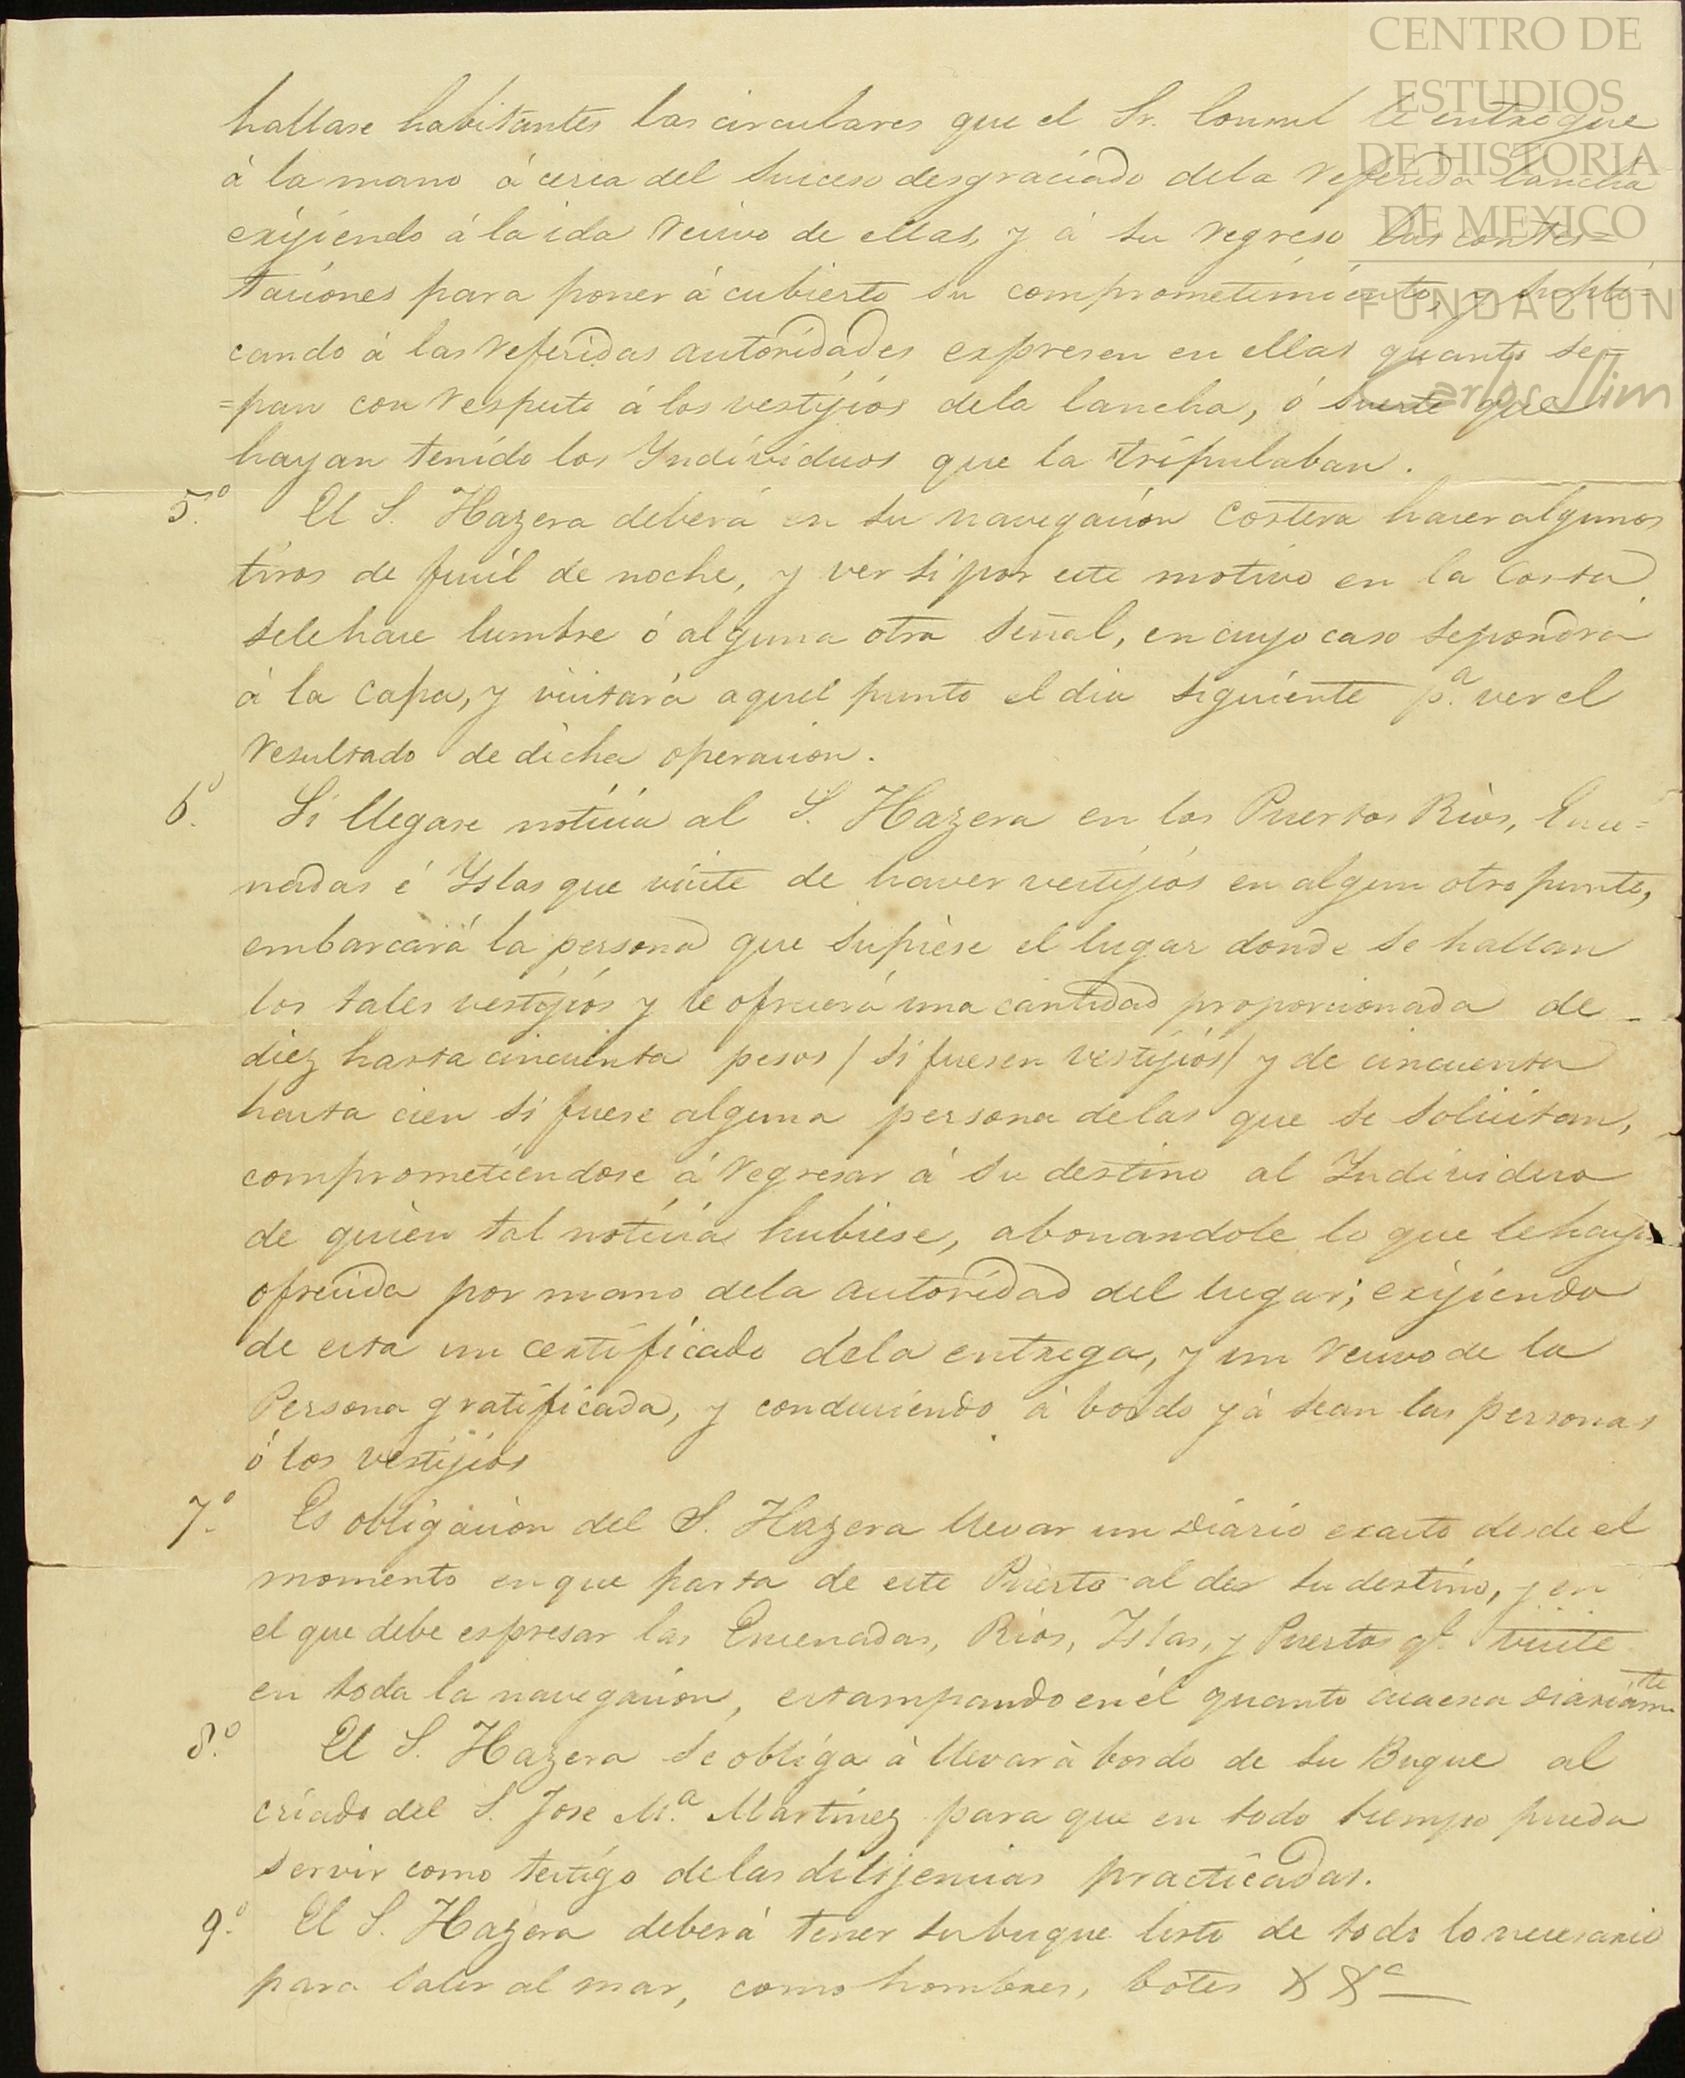 CENTRO DE
ESTUDIOS
DE HISTORIA
DE MEXICO
FUNDACION
Carlos Slim
hallase habitantes las circulares que el Sr. Consul le entregue
á la mano á cerca del suceso desgraciado dela referida lancha
exijiendo á la ida recivo de ellas, y á su regreso las contes=
taciones para poner á cubierto su comprometimiento, y supli=
cando á las referidas autoridades expresen en ellas quanto se=
=pan con respecto á los vestijios dela lancha, ó suerte que
hayan tenido los Yndividuos que la tripulaban.
5.º El S. Hazera deberá en su navegacion costera hacer algunos
tiros de fusil de noche, y ver si por este motivo en la Costa
sele hace lumbre ó alguna otra señal, en cuyo caso sepondrá
á la capa, y visitará aquel punto el dia siguiente p.ª ver el
resultado de dicha operacion.
6.º Si llegase noticia al S. Hazera en los Puertos Rios, Ence=
nadas é Yslas que visite de haver vestijios en algun otro punto,
embarcará la persona que supiese el lugar donde se hallan
los tales vestijios y le ofrecerá una cantidad proporcionada de
diez hasta cincuenta pesos / si fuesen vestijios / y de cincuenta
hasta cien si fuese alguna persona delas que se solicitan,
comprometiendose á regresar á su destino al Yndividuo
de quien tal noticia hubiese, abonandole lo que le haya
ofrecida por mano dela autoridad del lugar; exijiendo
de esta un certificado dela entrega, y un recivo de la
Persona gratificada, y conduciendo á bordo yá sean las personas
ó los vestijios
7.º Es obligacion del S. Hazera llevar un diario exacto desde el
momento en que parta de este Puerto al de su destino, y en
el que debe espresar las Encenadas, Rios, Yslas, y Puertos q.e visite
en toda la navegacion, estampando en él quanto acaesca diariam.te
8.º El S. Hazera se obliga á llevar á bordo de su Buque al
criado del S. Jose M.ª Martinez para que en todo tiempo pueda
servir como testigo de las dilijencias practicadas.
9.º El S. Hazera deberá tener su buque listo de todo lo necesario
para salir al mar, como hombres, botes &&ª